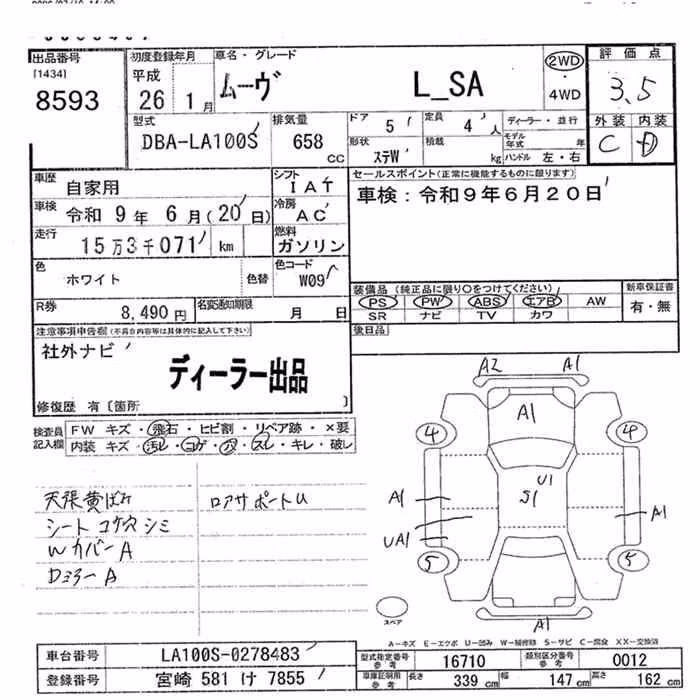 出品番号 初度登録年月 車名・グレード 評価点
[1434] 平成 ムーヴ L_SA 2WD ・ 4WD 3.5
8593 26 1月
型式 排気量 ドア 5 定員 4人 ディーラー・並行 外装 内装
DBA-LA100S 658 cc 形状 ステW 積載 kg モデル年式 年 ハンドル 左・右 C D
車歴 自家用 シフト IAT セールスポイント(正常に機能するものに限ります)
車検 令和 9年 6月(20日) 冷房 AC 車検:令和9年6月20日
走行 15万3千071 km 燃料 ガソリン
色 ホワイト 色替 色コード W09 装備品 (純正品に限り○をつけてください) 新車保証書
PS PW ABS エアB AW 有・無
R券 8,490円 名変通知期限 月 日 SR ナビ TV カワ
注意事項申告欄(不具合内容等は具体的に記入して下さい) 後日品
社外ナビ
ディーラー出品
修復歴 有〔箇所 〕
検査員記入欄 FW キズ・飛石・ヒビ割・リペア跡・×要
内装 キズ・汚レ・コゲ・穴・スレ・キレ・破レ
天張黄ばみ ロアサポートU
シート コゲ穴シミ
Wカバー A
Dミラー A
A2 A1
A1
4 4
U1
S1
A1 A1
UA1
5 5
スペア
A1
A-キズ E-エクボ U-凹み W-補修跡 S-サビ C-腐食 XX-交換済
車台番号 LA100S-0278483 型式指定番号 参考 16710 類別区分番号 参考 0012
登録番号 宮崎 581 け 7855 車庫証明用 参考 長さ 339 cm 幅 147 cm 高さ 162 cm